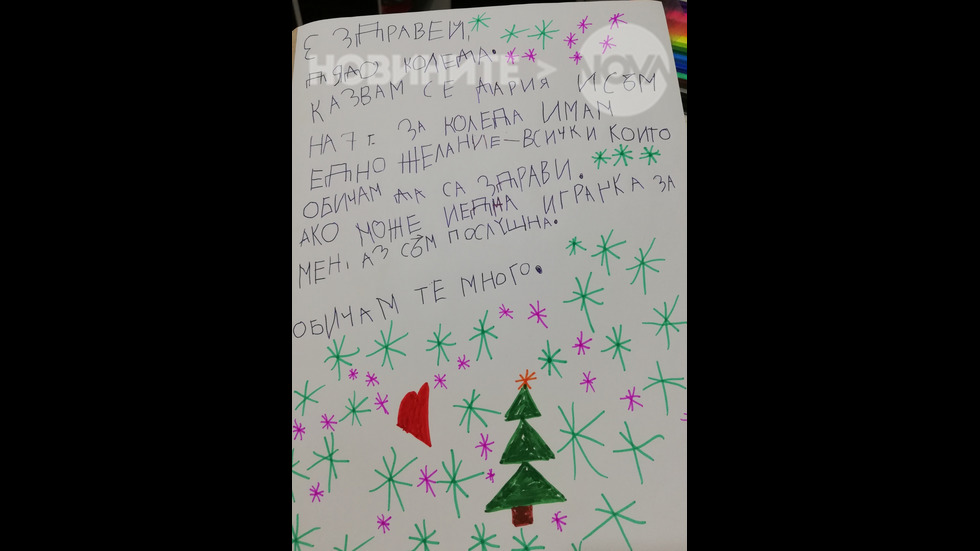 Є ЗДРАВЕЙ,
ДЯДО КОЛЕДА.
НОВИНИТЕ > NOVA
КАЗВАМ СЕ ДАРИЯ И СЪМ
НА 7 Г. ЗА КОЛЕДА ИМАМ
ЕДНО ЖЕЛАНИЕ – ВСИЧКИ КОИТО
ОБИЧАМ ДА СА ЗДРАВИ.
АКО МОЖЕ И ЕДНА ИГРАЧКА ЗА
МЕН, АЗ СЪМ ПОСЛУШНА.
ОБИЧАМ ТЕ МНОГО.